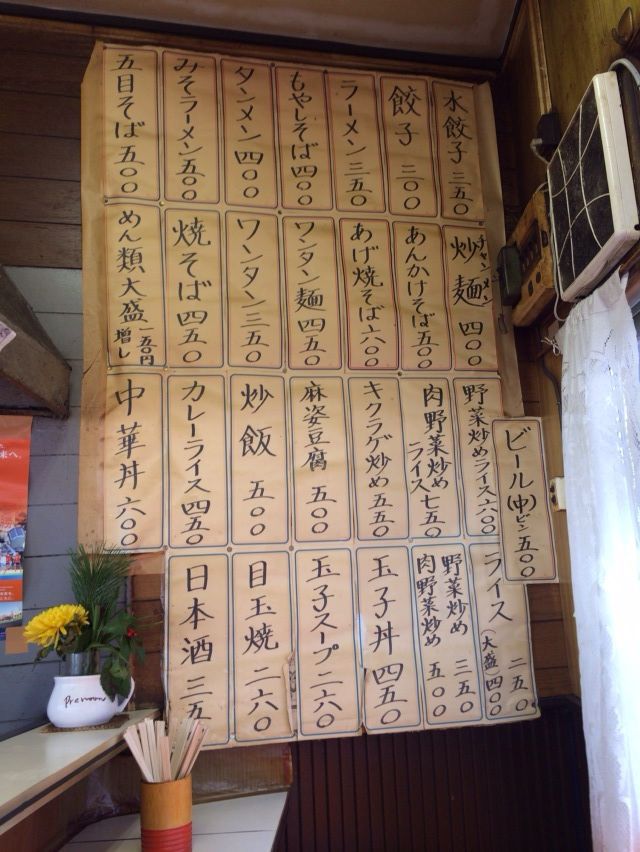 水餃子 三五〇
餃子 三〇〇
ラーメン 三五〇
もやしそば 四〇〇
タンメン 四〇〇
みそラーメン 五〇〇
五目そば 五〇〇
炒麺 チャンメン 四〇〇
あんかけそば 五〇〇
あげ焼そば 六〇〇
ワンタン麺 四五〇
ワンタン 三五〇
焼そば 四五〇
めん類大盛 一五〇円増し
ビール(中)ビン 五〇〇
野菜炒めライス 六〇〇
肉野菜炒めライス 七五〇
キクラゲ炒め 五五〇
麻姿豆腐 五〇〇
炒飯 五〇〇
カレーライス 四五〇
中華丼 六〇〇
ライス 二五〇
(大盛 四〇〇
野菜炒め 三五〇
肉野菜炒め 五〇〇
玉子丼 四五〇
玉子スープ 二六〇
目玉焼 二六〇
日本酒 三五
Premoon